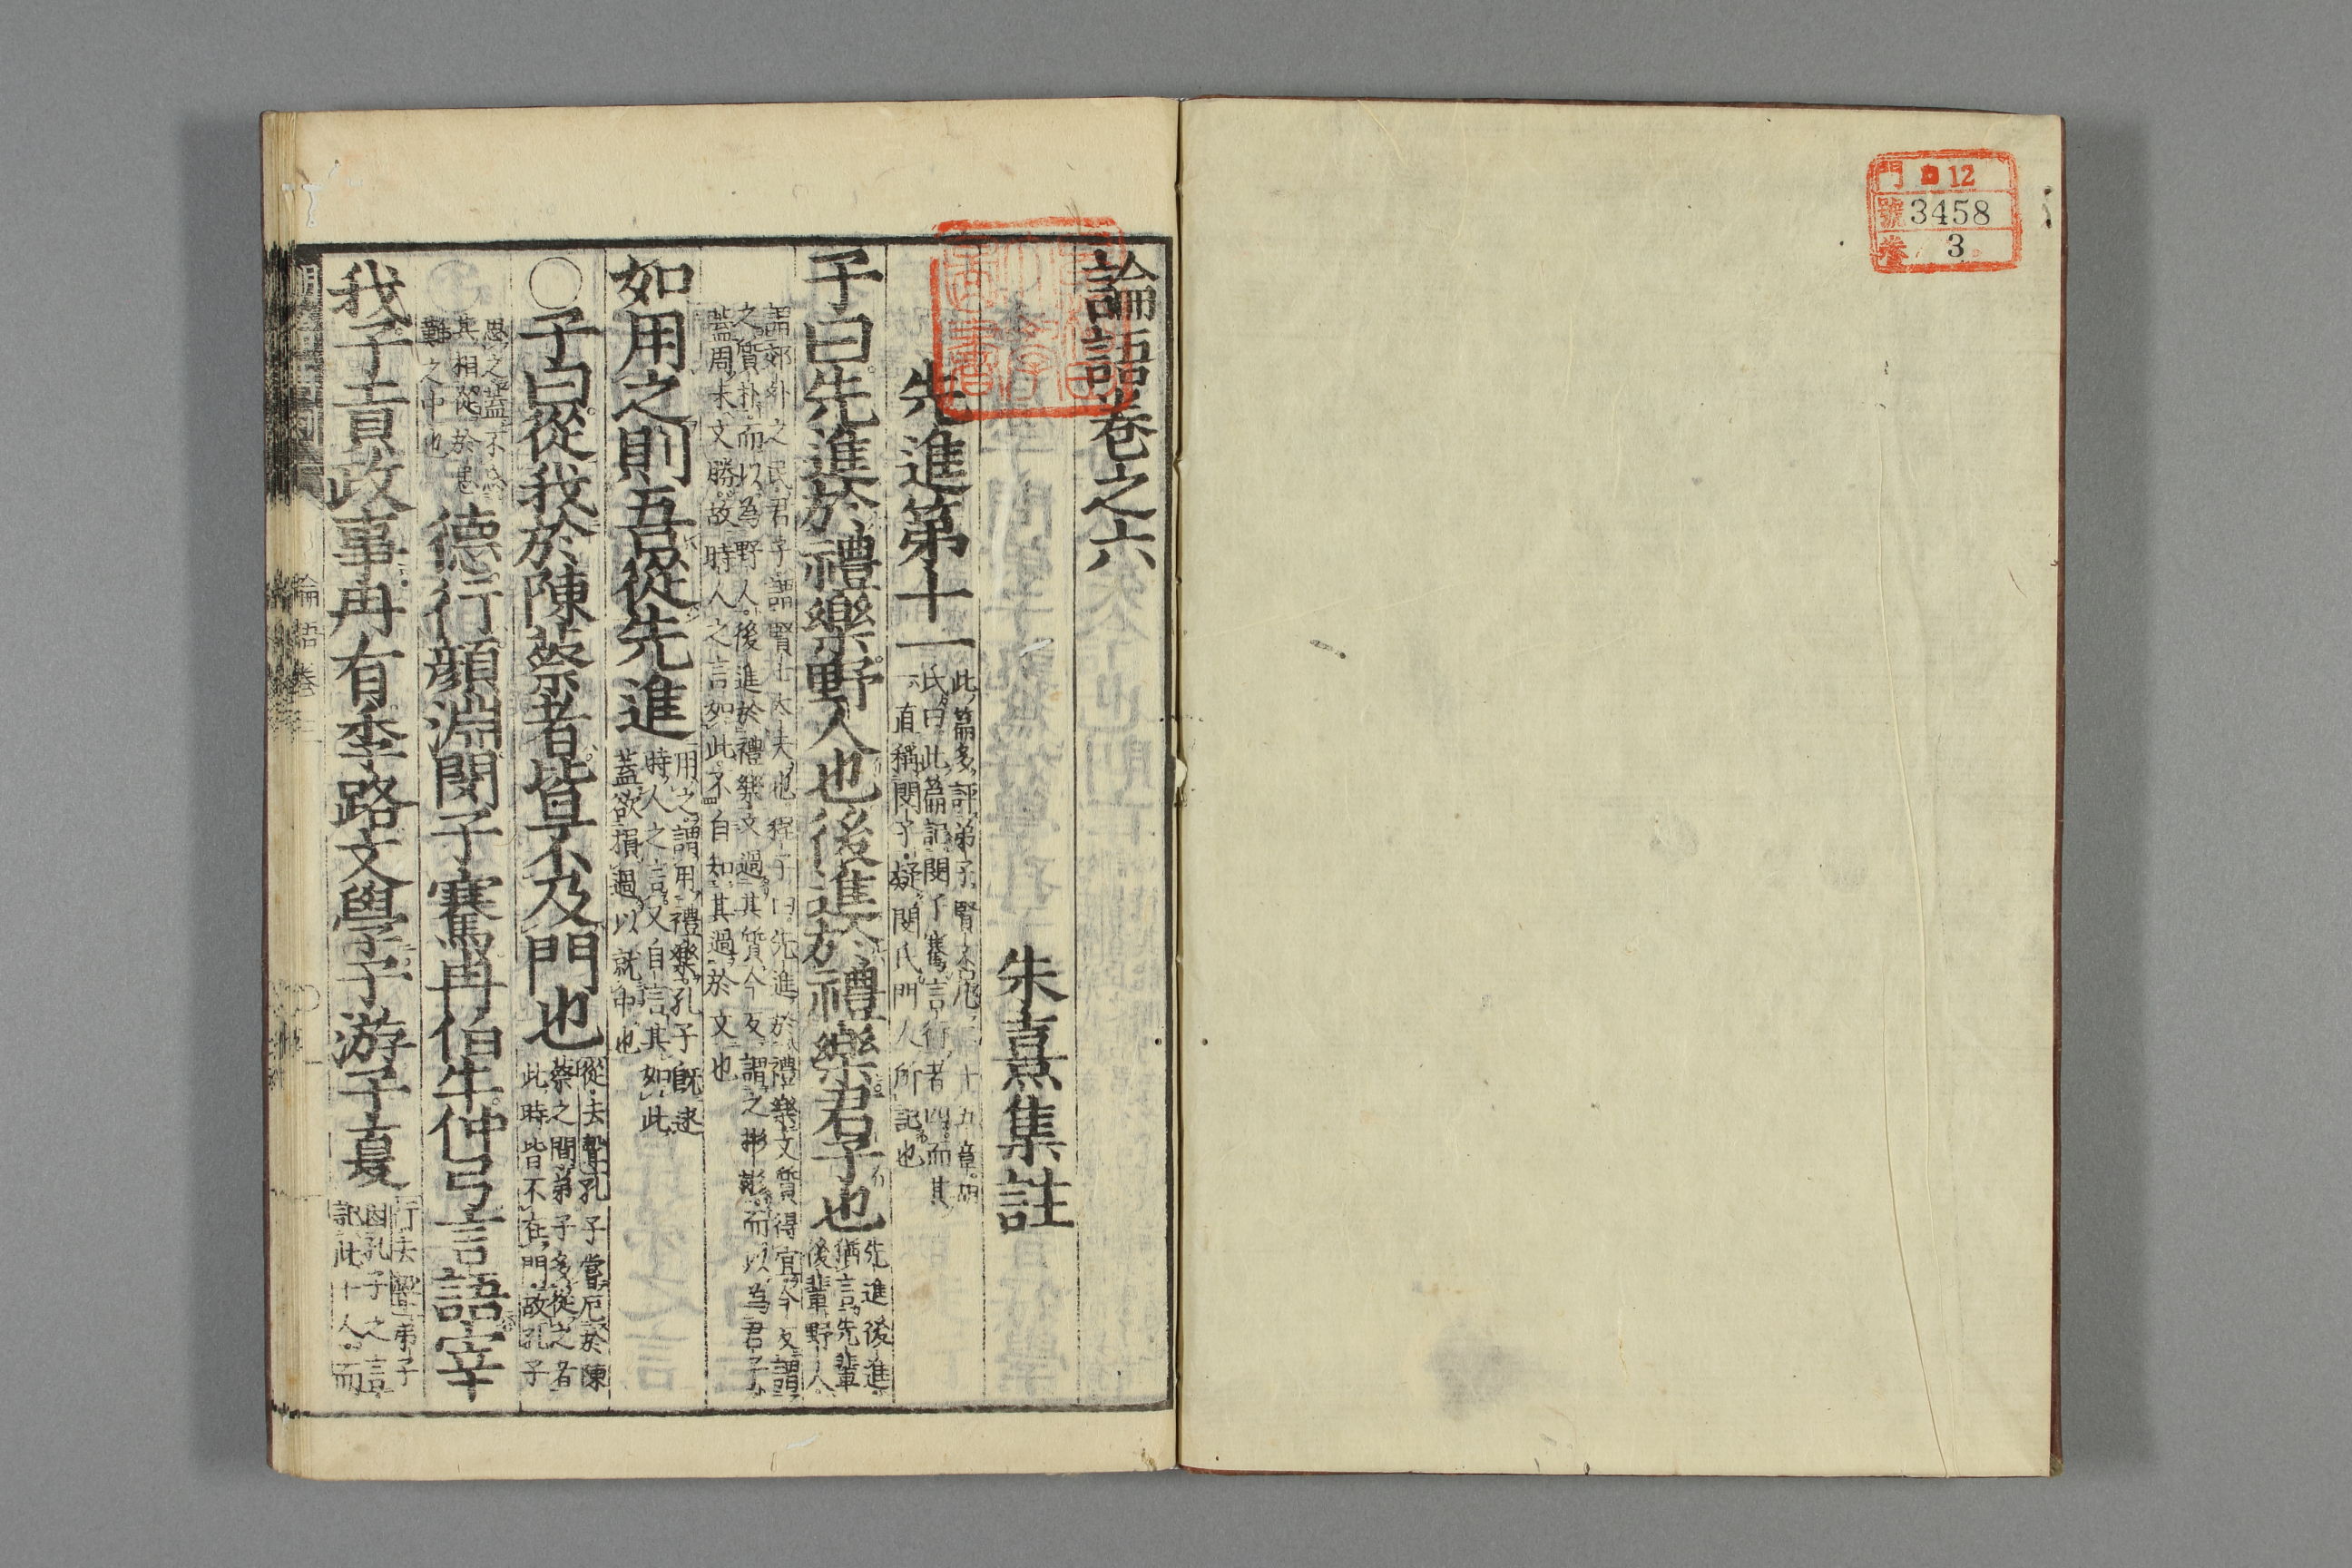 門 12
號 3458
卷 3
論語卷之六
朱熹集註
先進第十一
此篇多評弟子賢否凡二十五章胡
氏曰此篇記閔子騫言行者四而其
一直稱閔子疑閔氏門人所記也
子曰先進於禮樂野人也後進於禮樂君子也
先進後進
猶言先輩
後輩野人
謂郊外之民君子謂賢士大夫也程子曰先進於禮樂文質得宜今反謂
之質朴而以為野人後進於禮樂文過其質今反謂之彬彬而以為君子
蓋周末文勝故時人之言如此不自知其過於文也
如用之則吾從先進
用之謂用禮樂孔子既述
時人之言又自言其如此
蓋欲損過以就中也
○子曰從我於陳蔡者皆不及門也
從去聲孔子嘗厄於陳
蔡之間弟子多從之者
此時皆不在門故孔子
思之蓋不忘
其相從於患
難之中也
德行顏淵閔子騫冉伯牛仲弓言語宰
我子貢政事冉有季路文學子游子夏
行去聲弟子
因孔子之言
記此十人而
論語卷三